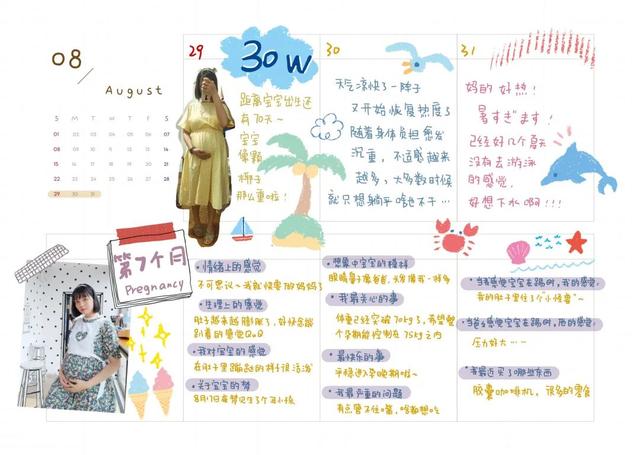 08
August
S M T W T F S
01 02 03 04 05 06 07
08 09 10 11 12 13 14
15 16 17 18 19 20 21
22 23 24 25 26 27 28
29 30 31
29
30W
距离宝宝出生还
有70天~
宝宝
像颗
椰子
那么重啦!
30
天气凉快了一阵子
又开始恢复热度了
随着身体负担愈发
沉重,不适感越来
越多,大多数时候
就只想躺平啥也不干…
31
妈的 好热!
暑すぎます!
已经好几个夏天
没有去游泳
的感觉,
好想下水啊!!!
第7个月
Pregnancy
·情绪上的感觉
不可思议~我就快要当妈妈了
·生理上的感觉
肚子越来越膨胀了,好怀念能
趴着的感觉QAQ
·我对宝宝的感觉
在肚子里蹦跶的样子很活泼
·关于宝宝的梦
8月17日夜梦见生了个男小孩
·想象中宝宝的模样
眼睛鼻子像爸爸,头发像我一样多
·我最关心的事
体重已经突破70kg了,希望整
个孕期能控制在75kg之内
·最快乐的事
平稳进入孕晚期啦~
·我最严重的问题
有点管不住嘴,啥都想吃
·当我感觉宝宝在踢时,我的感觉:
我的肚子里住了个小怪兽~
·当爸爸感觉宝宝在踢时,他的感觉:
压力好大……
·我最近买了哪些东西
胶囊咖啡机,很多的零食